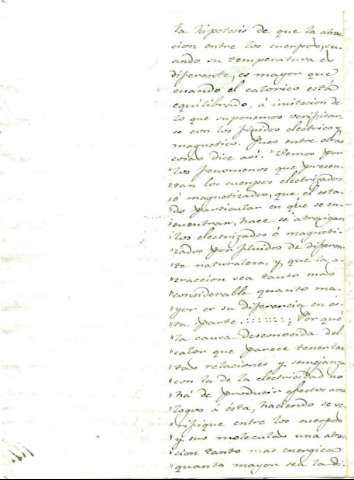 la hipotesis de que la atrac
cion entre los cuerpos, cu
ando su temperatura es
diferente, es mayor que
cuando el calorico está
equilibrado, á imitacion de
lo que suponemos verificar
se con los fluidos electrico y
magnetico. Pues entre otras
cosas dice asi. Vemos por
los fenomenos que presen
tan los cuerpos electrizados
ó magnetizados, que el esta
do particular en que se en
cuentran, hace se atraigan
los electrizados ó magneti
zados por fluidos de diferen
te naturaleza, y que la a
traccion sea tanto mas
considerable quanto ma
yor es su diferencia en es
ta parte ........; Por que
la causa desconocida del
calor que parece tener tan
tas relaciones y semejanza
con la de la electricidad no
há de producir efectos aná
logos á ésta, haciendo se ve
rifique entre los cuerpos
y sus moleculas una atrac
cion tanto mas energica
quanto mayor sea la di